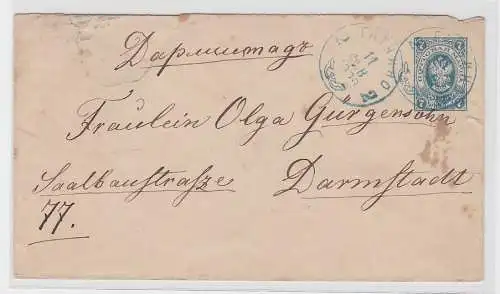 Дармштадъ
Fräulein Olga Gurgensohn
Saalbaustrasze Darmstadt
77.
7 7
7 7